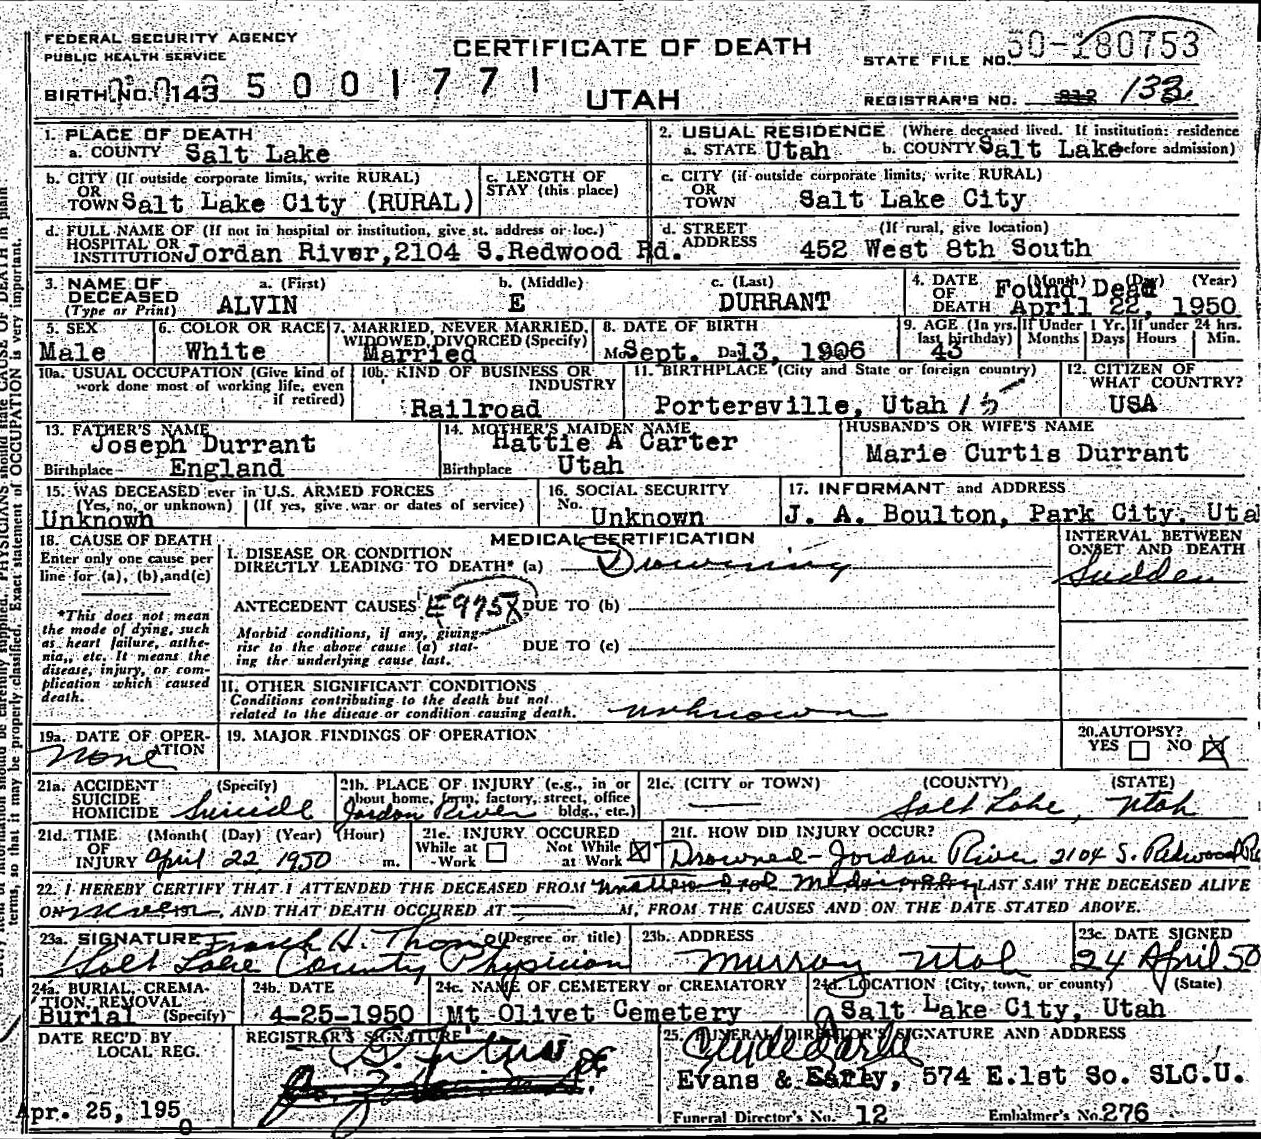 FEDERAL SECURITY AGENCY
PUBLIC HEALTH SERVICE
CERTIFICATE OF DEATH
UTAH
STATE FILE NO. 50-180753
BIRTH NO. 143 5001771
REGISTRAR'S NO. 812 133
1. PLACE OF DEATH
a. COUNTY Salt Lake
2. USUAL RESIDENCE (Where deceased lived. If institution: residence before admission)
a. STATE Utah b. COUNTY Salt Lake
b. CITY (If outside corporate limits, write RURAL)
OR TOWN Salt Lake City (RURAL)
c. LENGTH OF STAY (this place)
c. CITY (if outside corporate limits, write RURAL)
OR TOWN Salt Lake City
d. FULL NAME OF (If not in hospital or institution, give st. address or loc.)
HOSPITAL OR INSTITUTION Jordan River, 2104 S. Redwood Rd.
d. STREET ADDRESS (If rural, give location)
452 West 8th South
3. NAME OF DECEASED (Type or Print)
a. (First) ALVIN
b. (Middle) E
c. (Last) DURRANT
4. DATE OF DEATH (Month) (Day) (Year)
Found Dead
April 22, 1950
5. SEX
Male
6. COLOR OR RACE
White
7. MARRIED, NEVER MARRIED, WIDOWED, DIVORCED (Specify)
Married
8. DATE OF BIRTH
Mo Sept. Da 13, 1906
9. AGE (In yrs. last birthday) 43
If Under 1 Yr. Months Days
If under 24 hrs. Hours Min.
10a. USUAL OCCUPATION (Give kind of work done most of working life, even if retired)
10b. KIND OF BUSINESS OR INDUSTRY
Railroad
11. BIRTHPLACE (City and State or foreign country)
Portersville, Utah 15
12. CITIZEN OF WHAT COUNTRY?
USA
13. FATHER'S NAME
Joseph Durrant
Birthplace England
14. MOTHER'S MAIDEN NAME
Hattie A Carter
Birthplace Utah
HUSBAND'S OR WIFE'S NAME
Marie Curtis Durrant
15. WAS DECEASED ever in U.S. ARMED FORCES
(Yes, no, or unknown) (If yes, give war or dates of service)
Unknown
16. SOCIAL SECURITY
No. Unknown
17. INFORMANT and ADDRESS
J. A. Boulton, Park City, Uta
18. CAUSE OF DEATH
Enter only one cause per line for (a), (b), and (c)
*This does not mean the mode of dying, such as heart failure, asthenia, etc. It means the disease, injury, or complication which caused death.
MEDICAL CERTIFICATION
I. DISEASE OR CONDITION DIRECTLY LEADING TO DEATH* (a) Drowning
INTERVAL BETWEEN ONSET AND DEATH
Sudden
ANTECEDENT CAUSES E975X DUE TO (b)
Morbid conditions, if any, giving rise to the above cause (a) stating the underlying cause last.
DUE TO (c)
II. OTHER SIGNIFICANT CONDITIONS
Conditions contributing to the death but not related to the disease or condition causing death. unknown
19a. DATE OF OPERATION
None
19. MAJOR FINDINGS OF OPERATION
20. AUTOPSY?
YES NO X
21a. ACCIDENT SUICIDE HOMICIDE (Specify)
Suicide
21b. PLACE OF INJURY (e.g., in or about home, farm, factory, street, office bldg., etc.)
Jordan River
21c. (CITY or TOWN) (COUNTY) (STATE)
Salt Lake, Utah
21d. TIME OF INJURY (Month) (Day) (Year) (Hour)
April 22 1950 m.
21e. INJURY OCCURED
While at Work Not While at Work X
21f. HOW DID INJURY OCCUR?
Drowned - Jordan River 2104 S. Redwood Rd
22. I HEREBY CERTIFY THAT I ATTENDED THE DECEASED FROM Unattended Medically LAST SAW THE DECEASED ALIVE
ON Never, AND THAT DEATH OCCURED AT M, FROM THE CAUSES AND ON THE DATE STATED ABOVE.
23a. SIGNATURE (Degree or title)
Frank H. Thome
Salt Lake County Physician
23b. ADDRESS
Murray Utah
23c. DATE SIGNED
24 April 50
24a. BURIAL, CREMATION, REMOVAL (Specify)
Burial
24b. DATE
4-25-1950
24c. NAME OF CEMETERY or CREMATORY
Mt Olivet Cemetery
24d. LOCATION (City, town, or county) (State)
Salt Lake City, Utah
DATE REC'D BY LOCAL REG.
Apr. 25, 1950
REGISTRAR'S SIGNATURE
25. FUNERAL DIRECTOR'S SIGNATURE AND ADDRESS
Evans & Early, 574 E.1st So. SLC.U.
Funeral Director's No. 12
Embalmer's No. 276